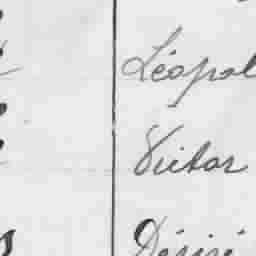 Léopol
Victor
Désiré